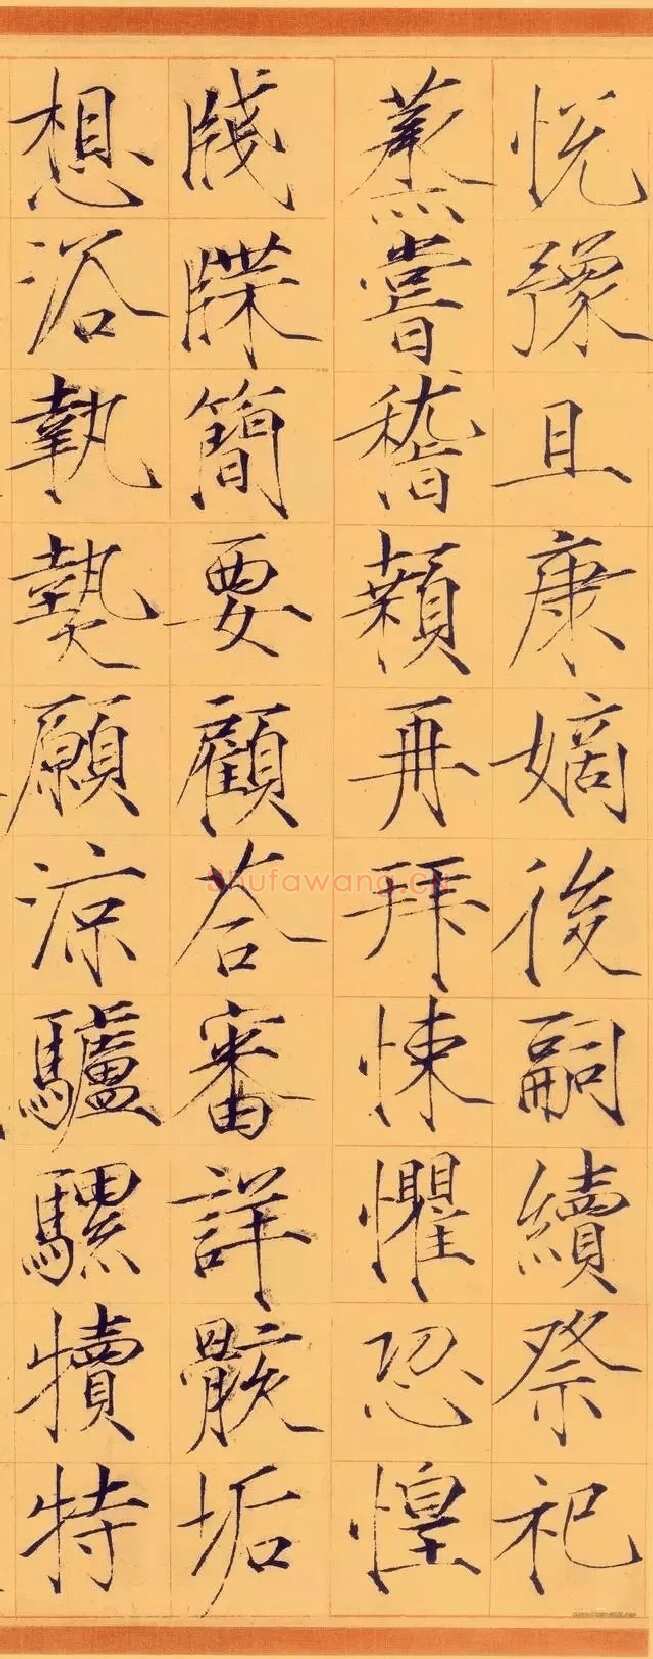 悅豫且康嫡後嗣續祭祀
蒸嘗稽顙再拜悚懼恐惶
牋牒簡要顧荅審詳骸垢
想浴執熱願涼驢騾犢特
shufawang.cn